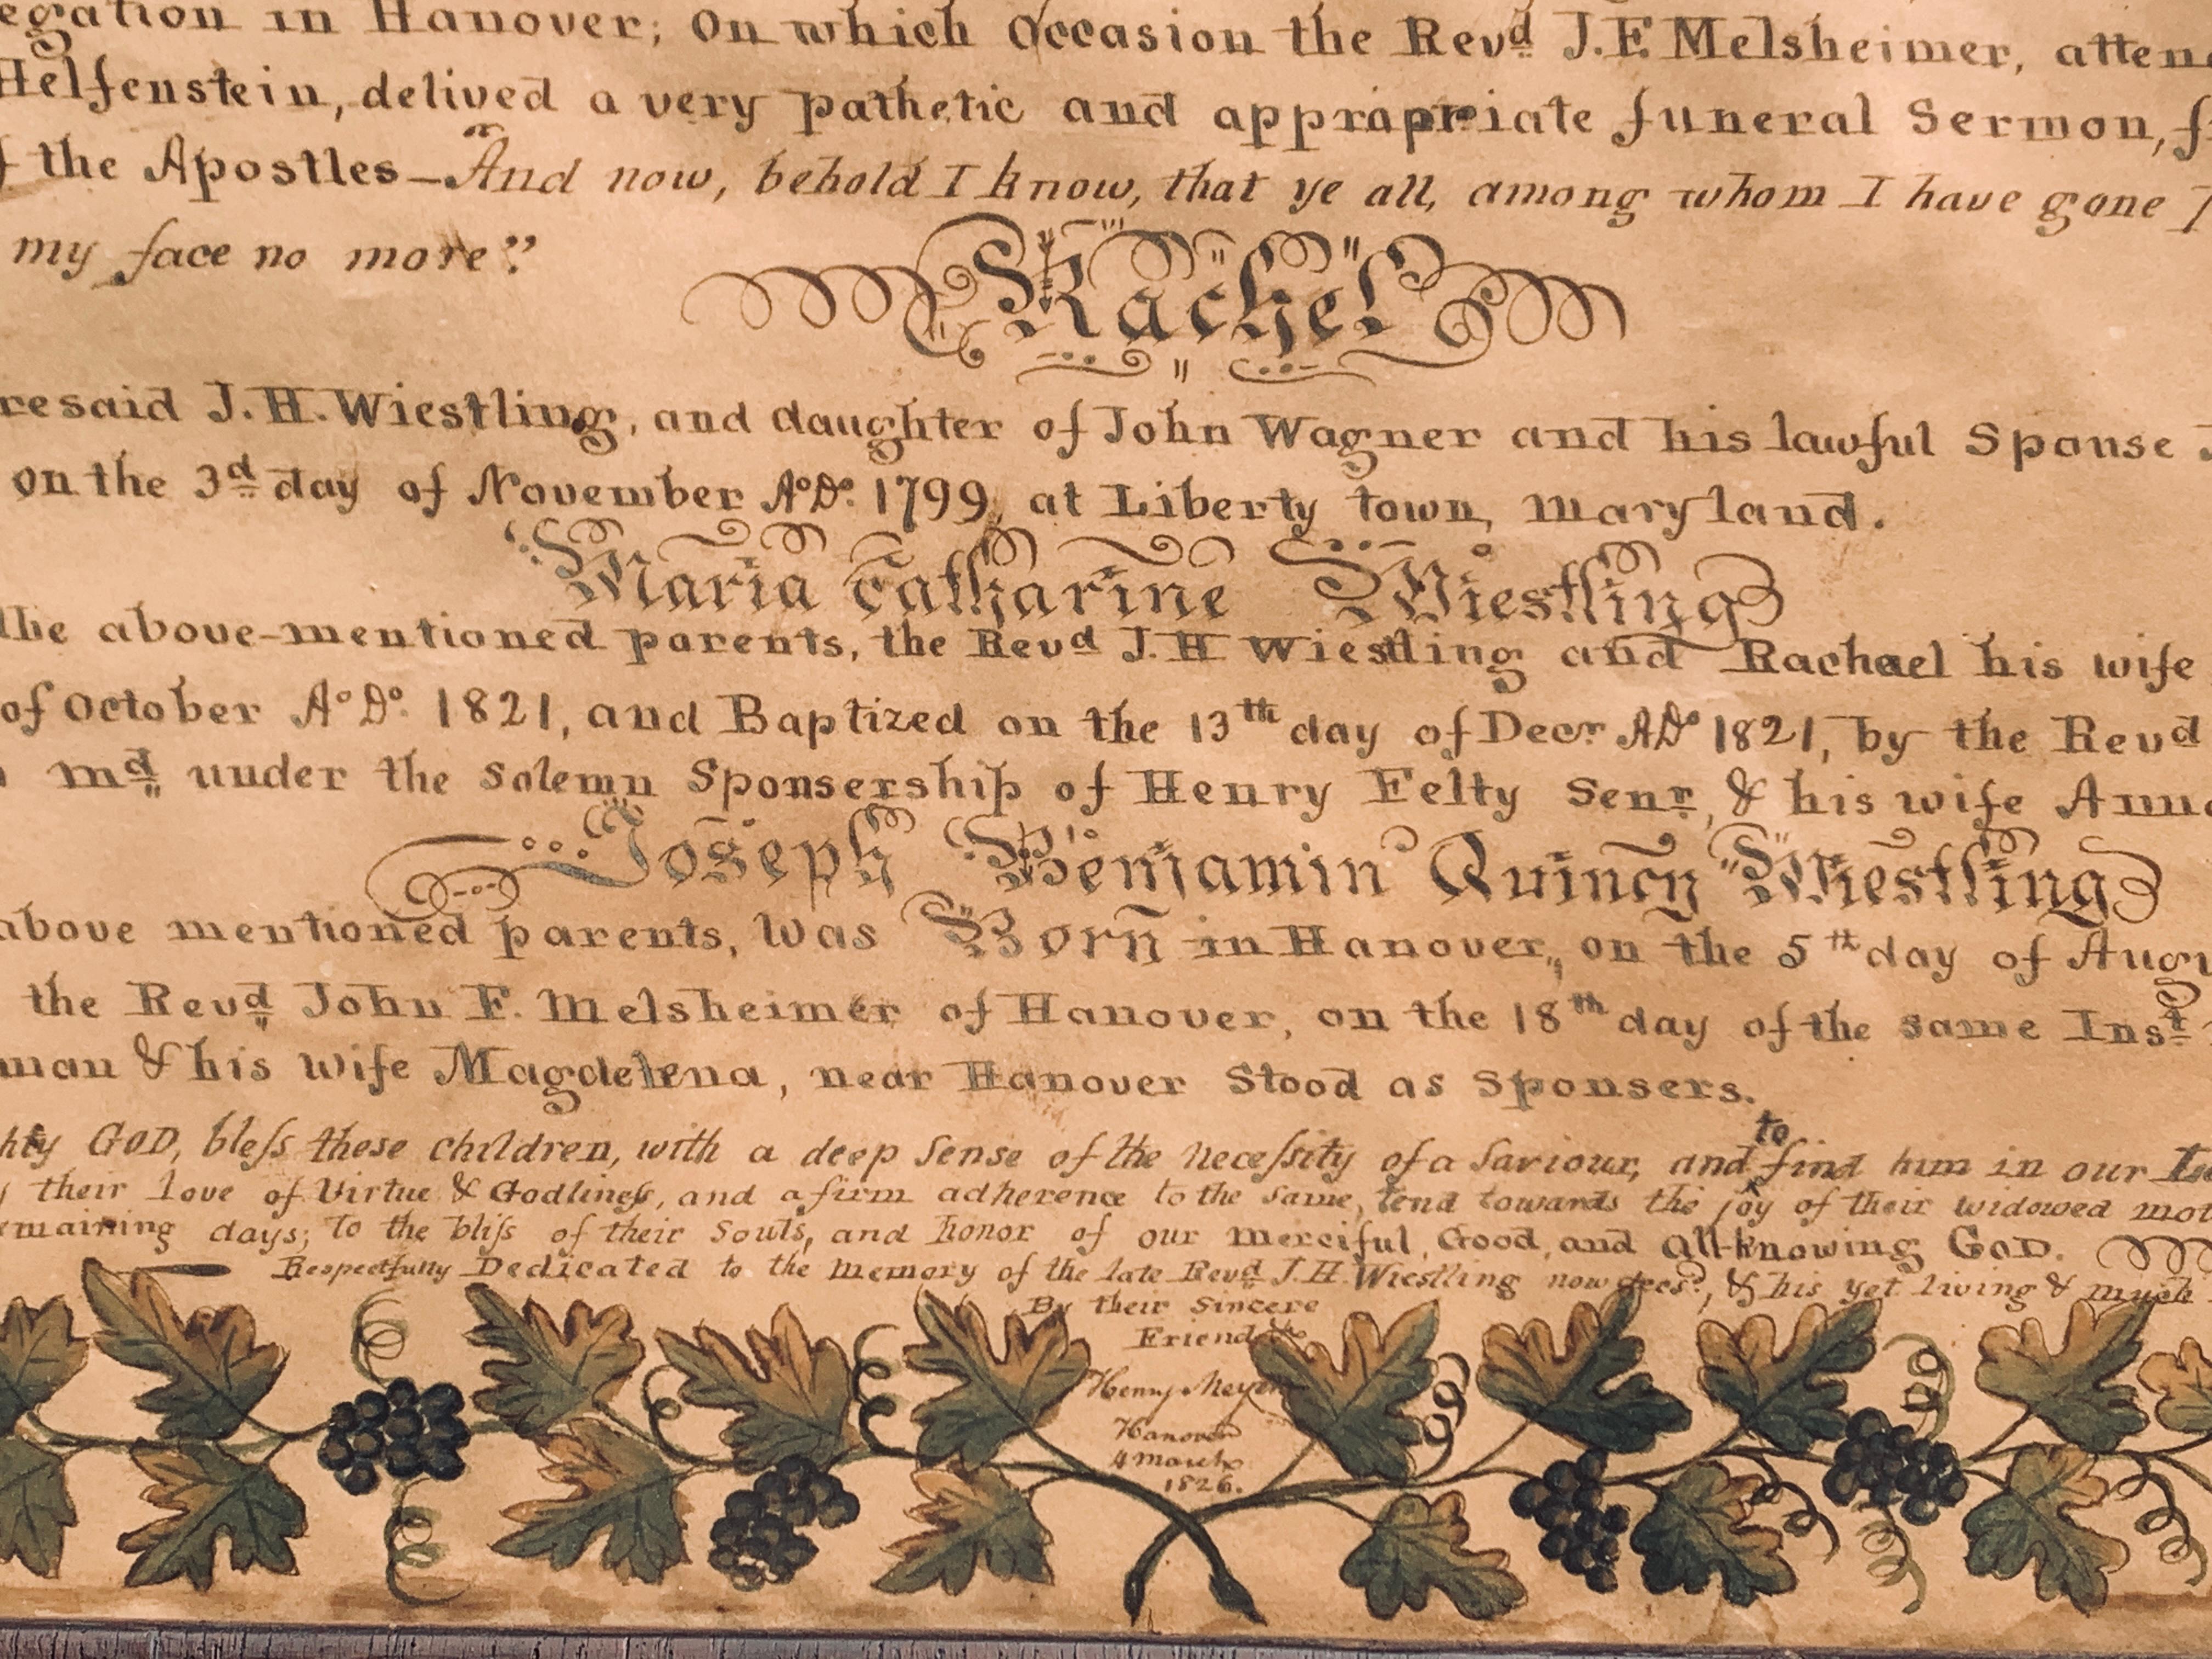 egation in Hanover; On which Occasion the Revd J. F. Melsheimer, atten
Helfenstein, delived a very pathetic and appropriate funeral Sermon, f
f the Apostles — "And now, behold I know, that ye all, among whom I have gone
my face no more"
Rachel
resaid J. H. Wiestling, and daughter of John Wagner and his lawful Spouse
on the 3d day of November A.D. 1799, at Liberty town, Maryland.
Maria Catharine Wiestling
the above-mentioned parents, the Revd J. H Wiestling and Rachael his wife
of October A.D. 1821, and Baptized on the 13th day of Decr AD 1821, by the Revd
md under the Solemn Sponsership of Henry Felty Senr, & his wife Anna
Joseph Benjamin Quincy Wiestling
above mentioned parents, was Born in Hanover, on the 5th day of Augu
the Revd John F. Melsheimer of Hanover, on the 18th day of the same Inst
man & his wife Magdelena, near Hanover Stood as Sponsers.
hty GOD, bleſs these children, with a deep Sense of the neceſsity of a Saviour, and to find him in our
their love of Virtue & Godlineſs, and a firm adherence to the Same, tend towards the joy of their widowed mot
maining days; to the bliſs of their Souls, and honor of our merciful, Good, and All-knowing GOD.
Respectfully Dedicated to the Memory of the late Revd J. H. Wiestling now decd, & his yet living & much
By their Sincere
Friend
Henry Meyer
Hanover
4 March
1826.